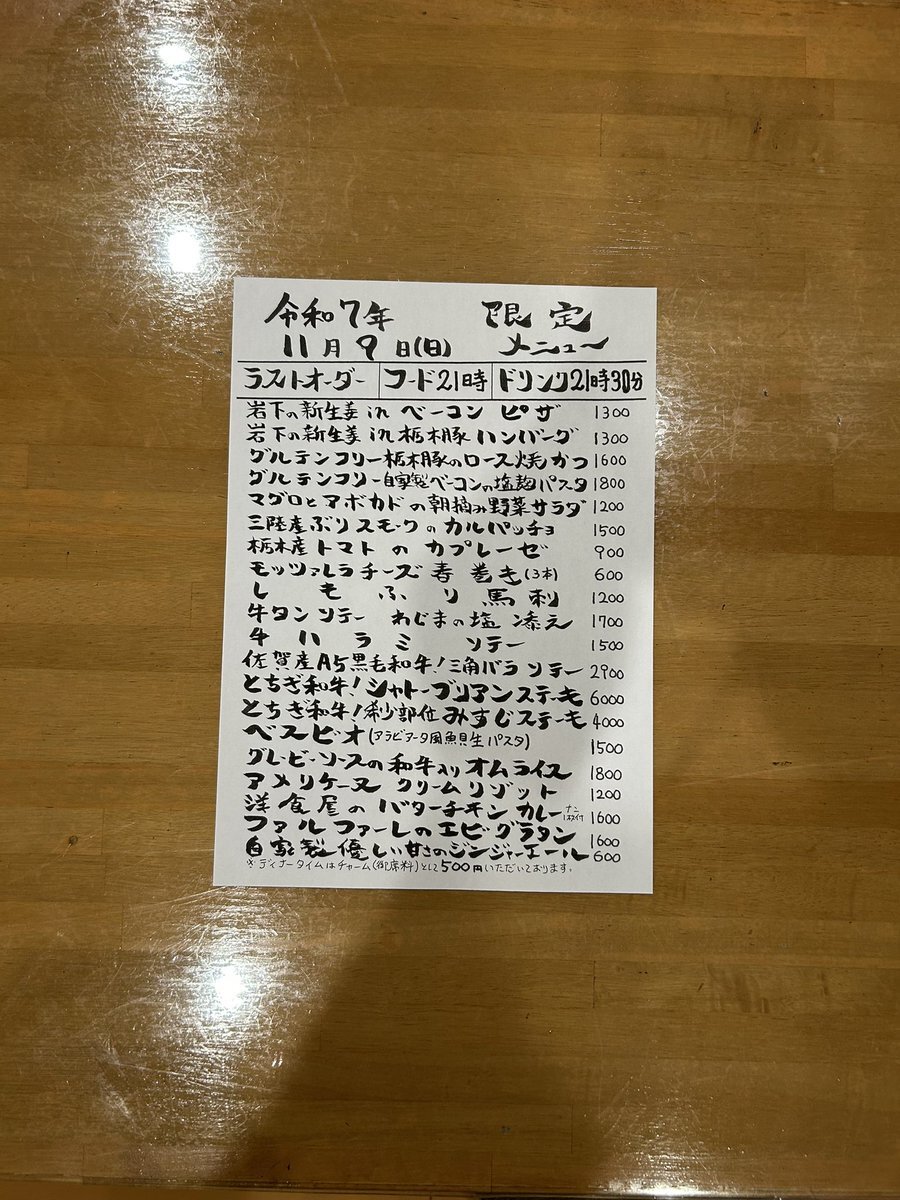 令和7年 限定
11月9日(日) メニュー
ラストオーダー フード21時 ドリンク21時30分
岩下の新生姜in ベーコン ピザ 1300
岩下の新生姜in栃木豚ハンバーグ 1300
グルテンフリー栃木豚のロース焼かつ 1600
グルテンフリー自家製ベーコンの塩麹パスタ 1800
マグロとアボカドの朝摘み野菜サラダ 1200
三陸産ぶりスモークのカルパッチョ 1500
栃木産トマトのカプレーゼ 900
モッツァレラチーズ春巻き(3本) 600
しもふり馬刺 1200
牛タンソテー わじまの塩添え 1700
牛ハラミソテー 1500
佐賀産A5黒毛和牛!三角バラソテー 2900
とちぎ和牛!シャトーブリアンステーキ 6000
とちぎ和牛!希少部位みすじステーキ 4000
ベスビオ(アラビアータ風魚貝生パスタ) 1500
グレービーソースの和牛入りオムライス 1800
アメリケーヌ クリームリゾット 1200
洋食屋のバターチキンカレーナン1枚付 1600
ファルファーレのエビグラタン 1600
自家製優しい甘さのジンジャーエール 600
※ディナータイムはチャーム(御席料)として500円いただいております。